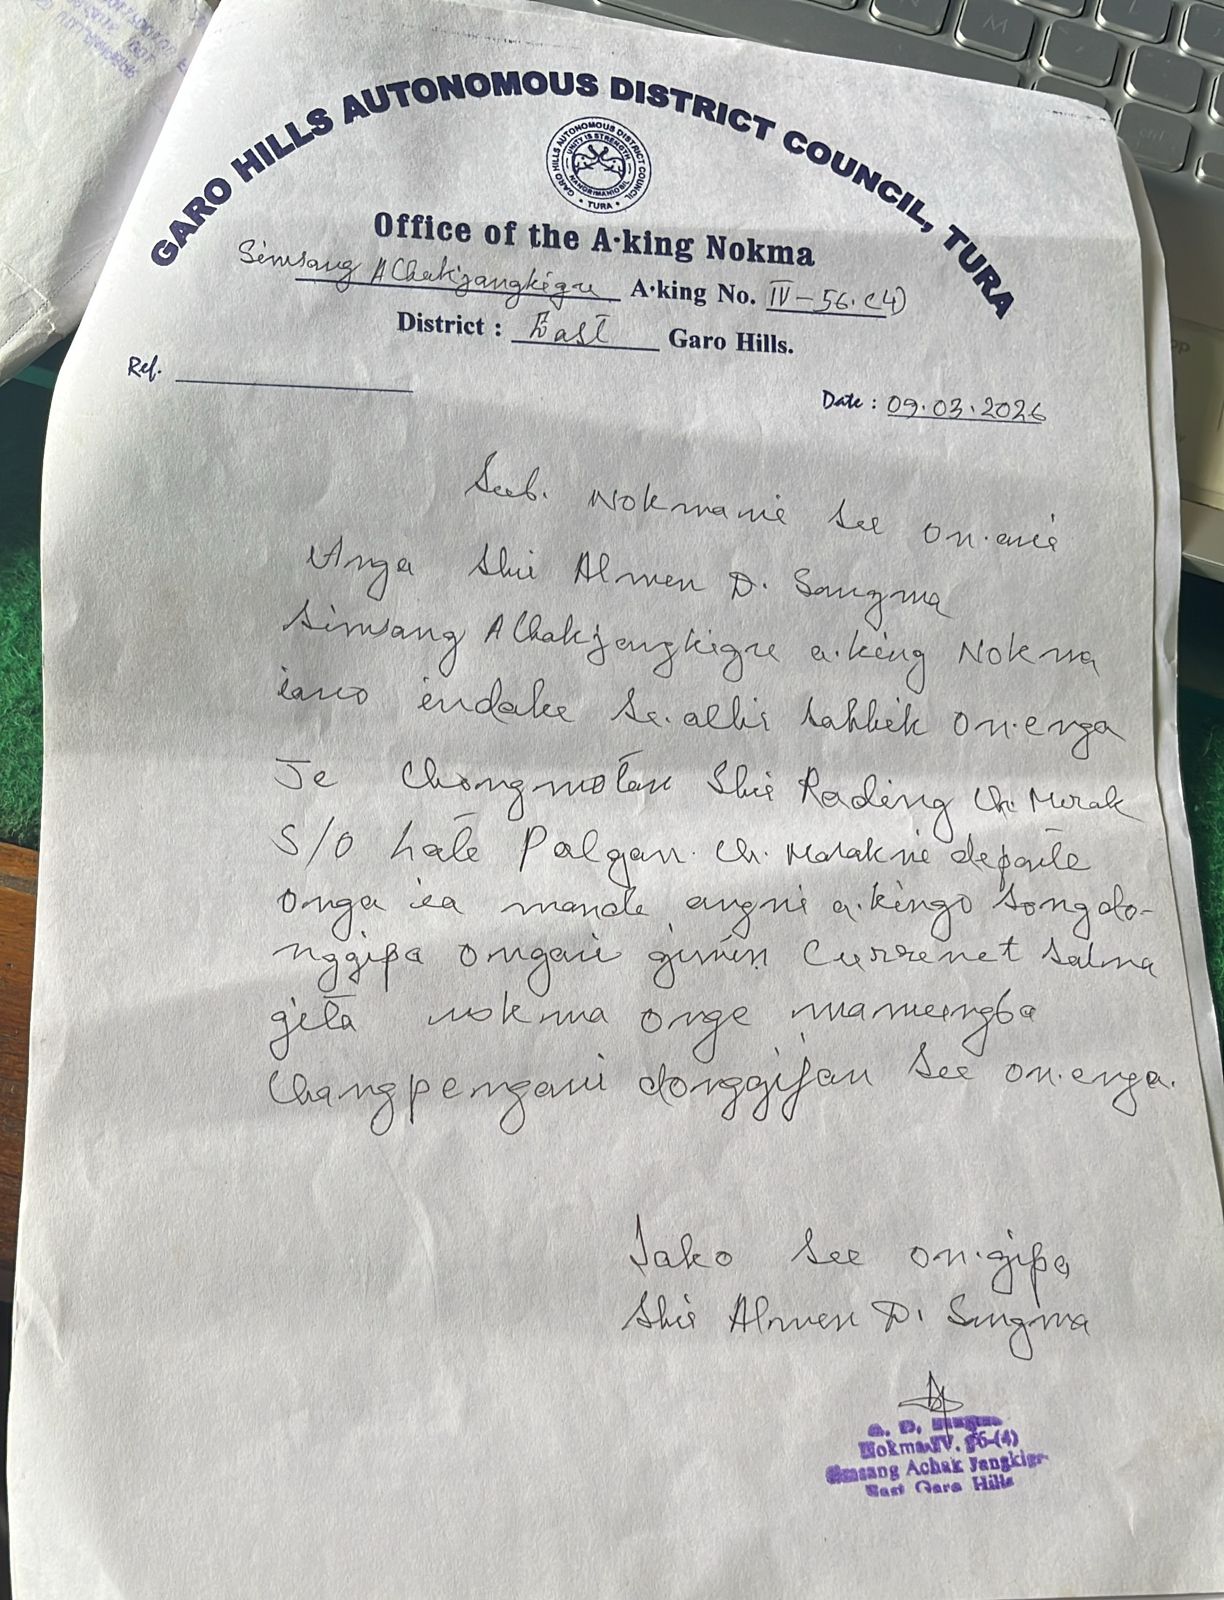 GARO HILLS AUTONOMOUS DISTRICT COUNCIL, TURA
GARO HILLS AUTONOMOUS DISTRICT COUNCIL
UNITY IS STRENGTH
• TURA •
Office of the A·king Nokma
Simsang AChakjangkigre A·king No. IV-56.(4)
District : East Garo Hills.
Ref.
Date : 09.03.2026
Sub. Nokmani See on·ani
Anga Shri Almen D. Sangma
Simsang AChakjangkigre a·king Nokma
iano indake Se·alki Sakkik on·enga
Je Chongmotan Shri Rading Ch. Marak
S/O Late Palgan. Ch. Marakni depante
Onga ia mande angni a·kingo Songdo-
nggipa ongani gimin Currenet Salna
gita nokma onge mamungba
Changpengani donggijan See on·enga.
Iako See on·gipa
Shri Almen D. Sangma
Nokma IV. 56-(4)
Simsang Achak Jangkigr
East Garo Hills